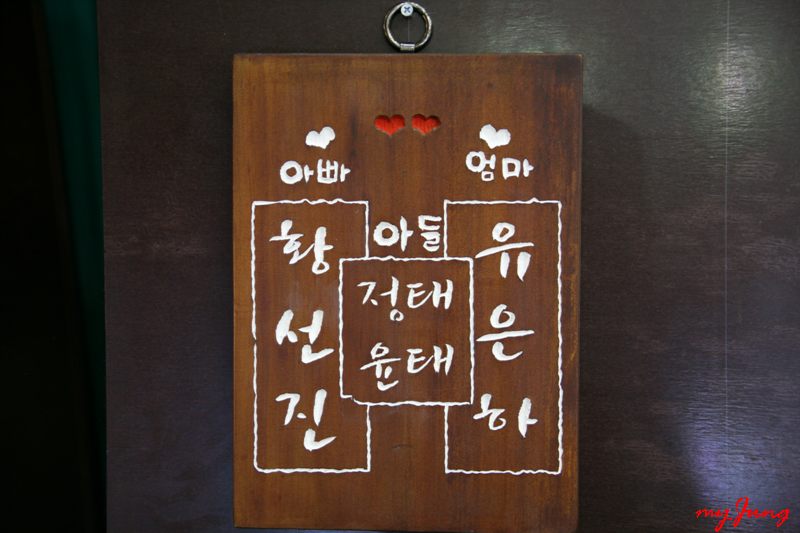 아빠
엄마
황선진
아들
정태
윤태
유은하
myJung